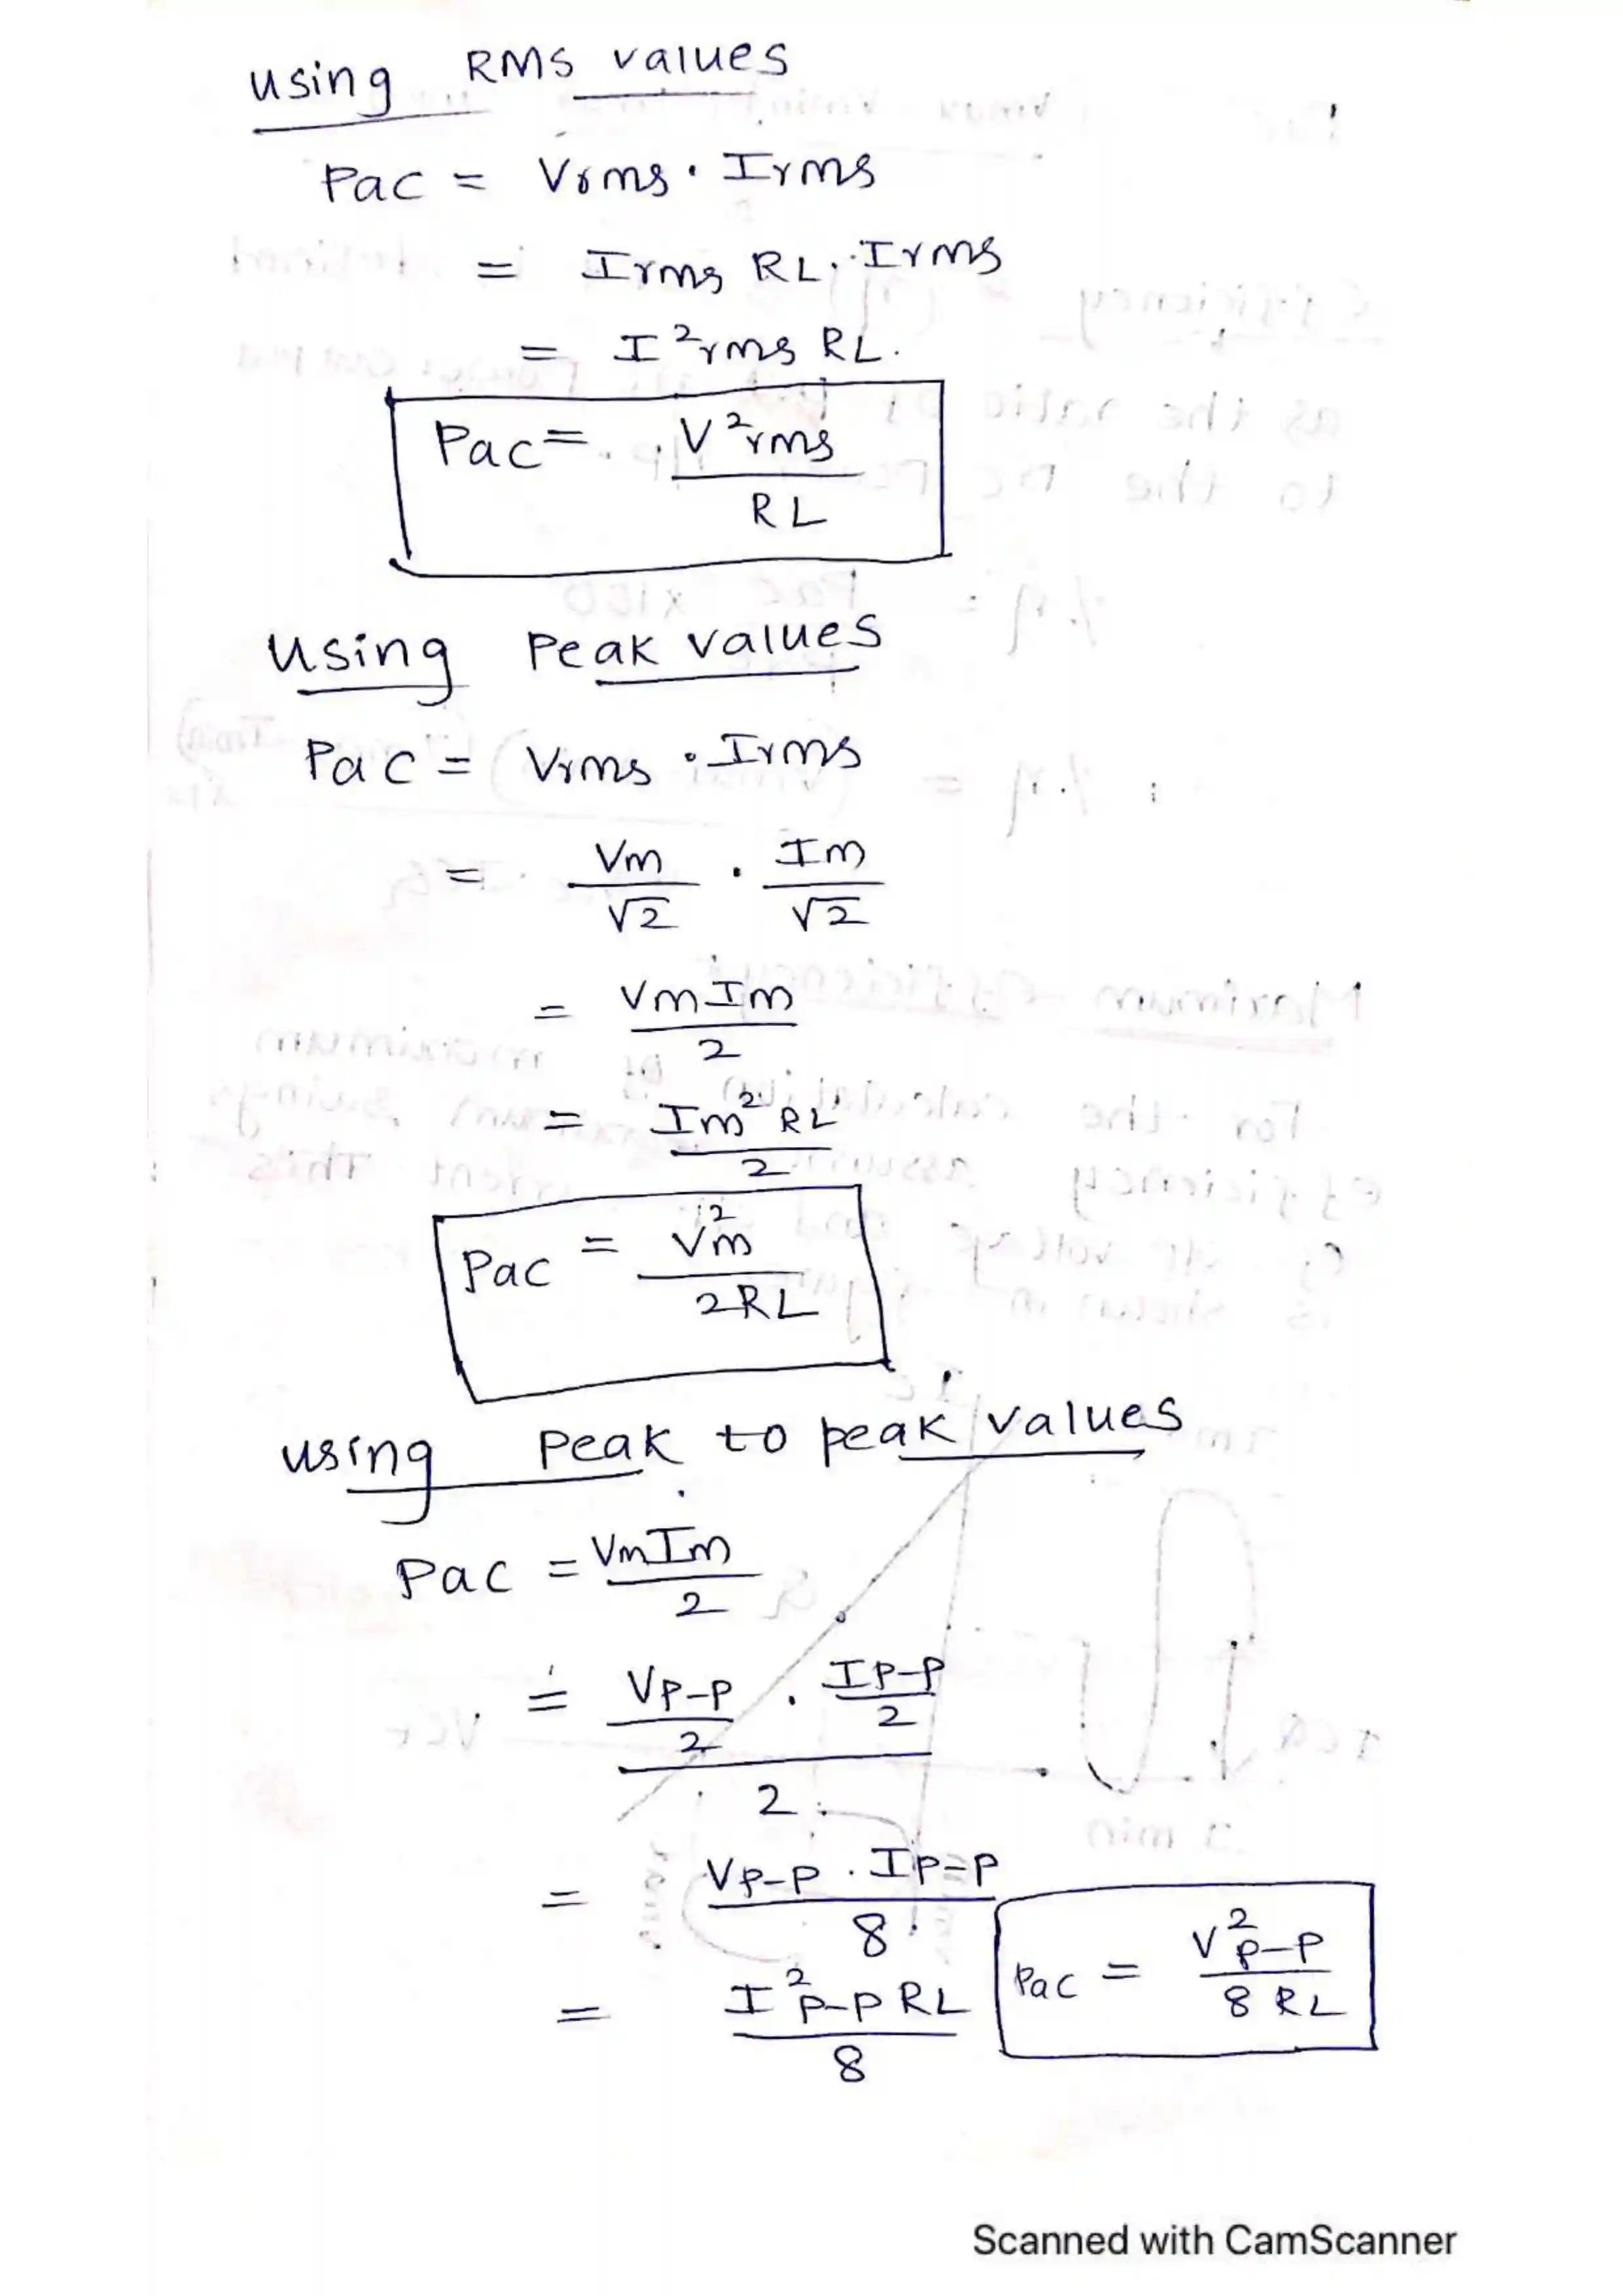 using RMS values
Pac = Vrms . Irms
= Irms RL . Irms
= I²rms RL.
Pac = V²rms
RL
using Peak values
Pac = Vrms . Irms
= Vm . Im
√2 √2
= VmIm
2
= Im² RL
2
Pac = Vm²
2RL
using peak to peak values
Pac = VmIm
2
= VP-P . IP-P
2 2
2
= VP-P . IP-P
8
= I²P-P RL
8
Pac = V²P-P
8 RL
Scanned with CamScanner